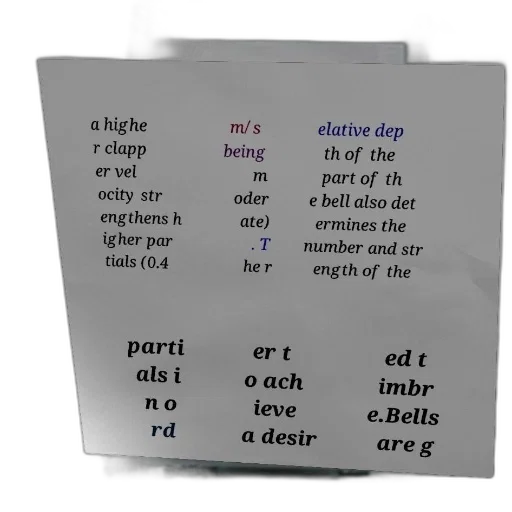 a highe
r clapp
er vel
ocity str
engthens h
igher par
tials (0.4
m/s
being
m
oder
ate)
. T
he r
elative dep
th of the
part of th
e bell also det
ermines the
number and str
ength of the
parti
als i
n o
rd
er t
o ach
ieve
a desir
ed t
imbr
e.Bells
are g